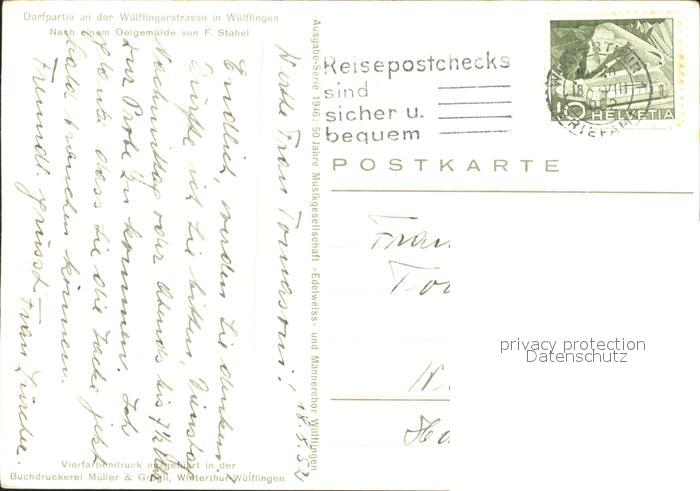 Dorfpartie an der Wülflingerstrasse in Wülflingen
Nach einem Oelgemälde von F. Stahel
Werthe Frau Tomasoni!
18.8.52
Endlich, werden Sie denken!
Dürfte ich Sie bitten, Dienstag
Nachmittag oder Abends bis 7½ Uhr
zur Probe zu kommen. Ich
glaube dass Sie die Jacke jetzt
bald brauchen können.
Freundl. grüsst Frau
Vierfarbendruck ausgeführt in der
Buchdruckerei Müller & Winterthur-Wülflingen
Ausgabe-Serie 1946: 50 Jahre Musikgesellschaft «Edelweiss» und Männerchor Wülflingen
Reisepostchecks
sind
sicher u.
bequem
WINTERTHUR 1
10 HELVETIA
POSTKARTE
Frau
privacy protection
Datenschutz